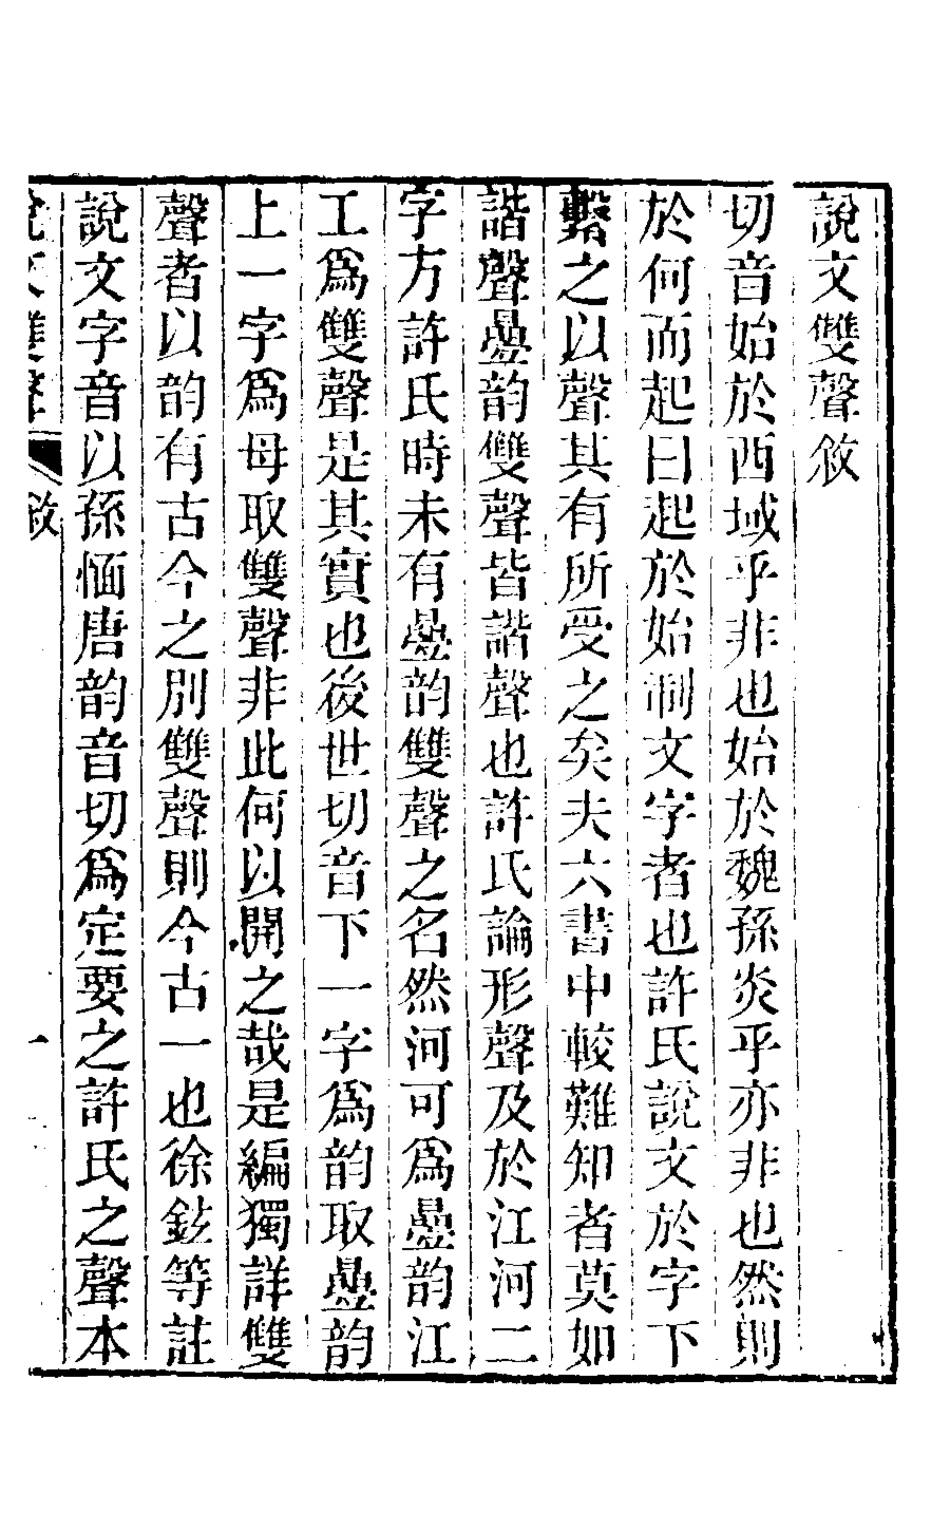 說文雙聲敘
切音始於西域乎非也始於魏孫炎乎亦非也然則
於何而起曰起於始制文字者也許氏說文於字下
繫之以聲其有所受之矣夫六書中較難知者莫如
諧聲曡韵雙聲皆諧聲也許氏論形聲及於江河二
字方許氏時未有曡韵雙聲之名然河可爲曡韵江
工爲雙聲是其實也後世切音下一字爲韵取曡韵
上一字爲母取雙聲非此何以開之哉是編獨詳雙
聲者以韵有古今之別雙聲則今古一也徐鉉等註
說文字音以孫愐唐韵音切爲定要之許氏之聲本
說文雙聲 敘 一